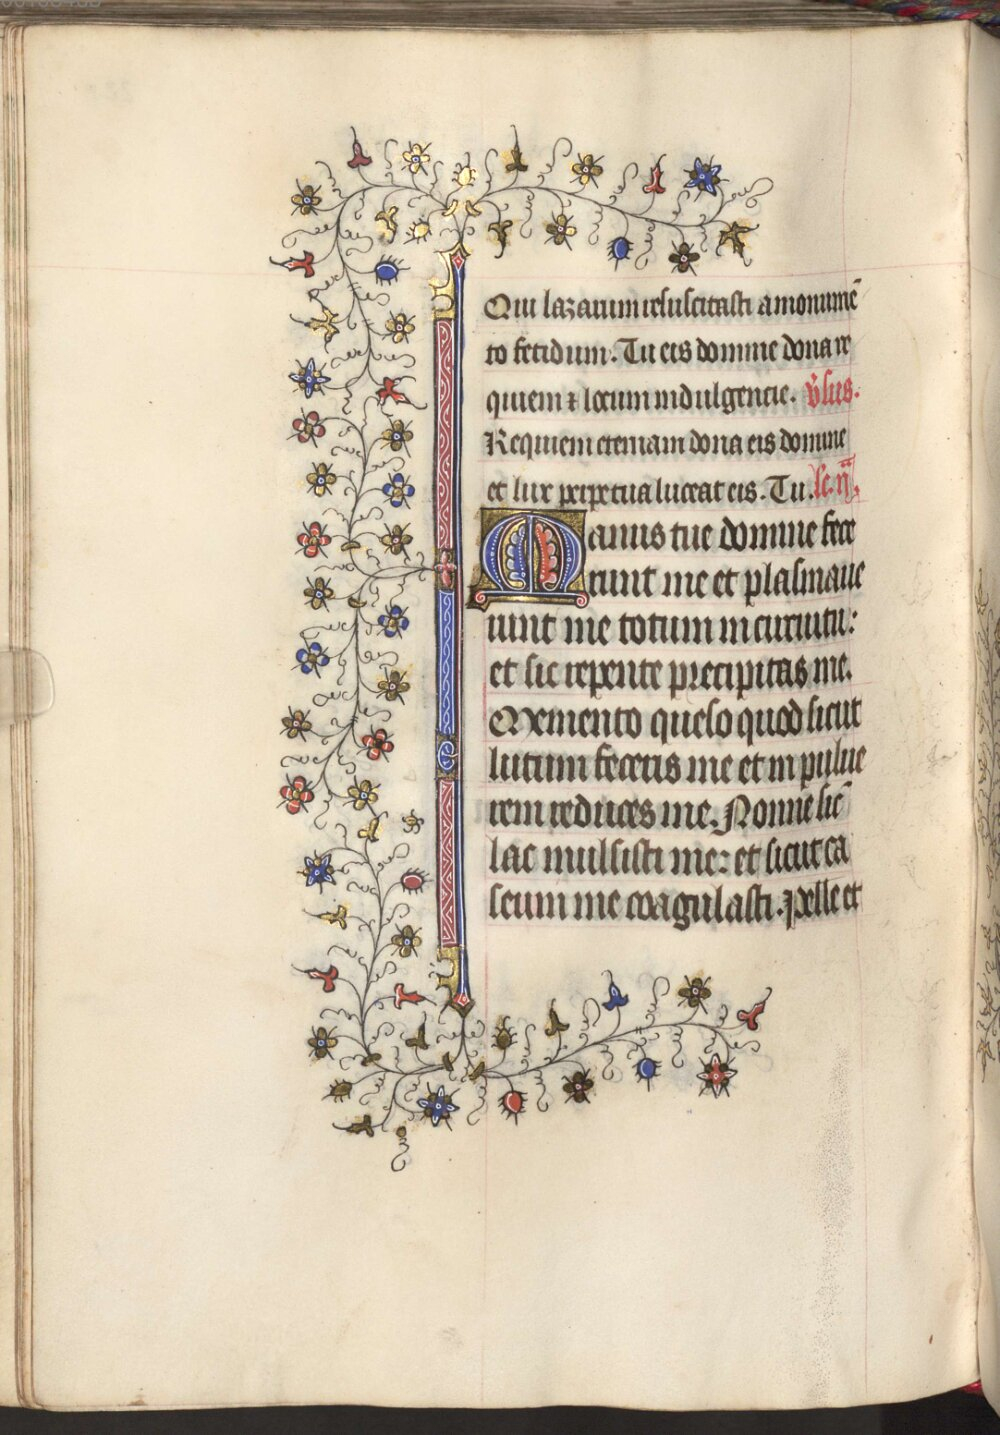 Qui lazarum resuscitasti a monumē
to fetidum. Tu eis domine dona re
quiem ⁊ locum indulgencie. v̄sus.
Requiem eternam dona eis domine
et lux perpetua luceat eis. Tu. lc̄. ij.
Manus tue domine fece
runt me et plasmaue
runt me totum in circuitu:
et sic repente precipitas me.
Memento queso quod sicut
lutum feceris me et in pulue
rem reduces me. Nonne sic̄
lac mulsisti me: et sicut ca
seum me coagulasti. pelle et